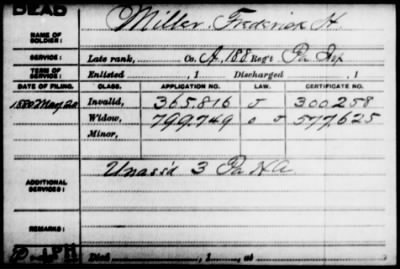 DEAD
NAME OF SOLDIER: Miller, Frederick H.
SERVICE: Late rank, Co. A, 188 Reg't Pa Inf
TERM OF SERVICE: Enlisted , 1 Discharged , 1
DATE OF FILING. CLASS. APPLICATION NO. LAW. CERTIFICATE NO.
1880 May 20 Invalid, 365.816 J 300.258
Widow, 799.749 J 577.625
Minor,
ADDITIONAL SERVICES: Unass'd 3 Pa H A
REMARKS:
Died , 1 , at